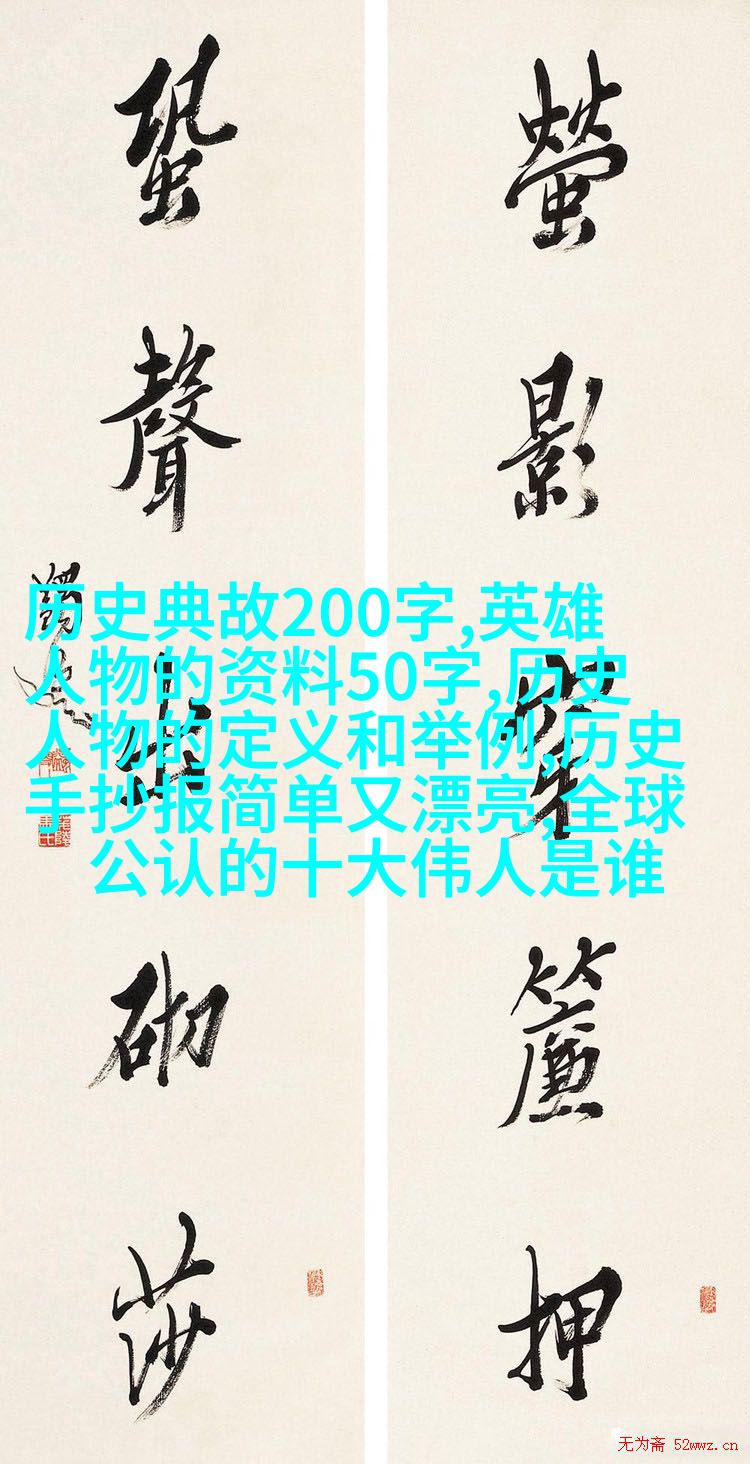 萤影
簾押
蛩聲
砌莎
历史典故200字,英雄
人物的资料50字,历史
人物的定义和举例,历史
手抄报简单又漂亮,全球
公认的十大伟人是谁
无为斋 52wwz.cn